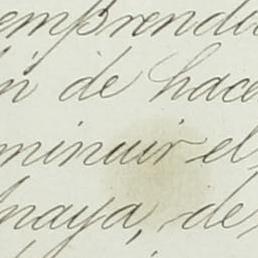 emprendi
n de hace
minuir el
Anaya, de